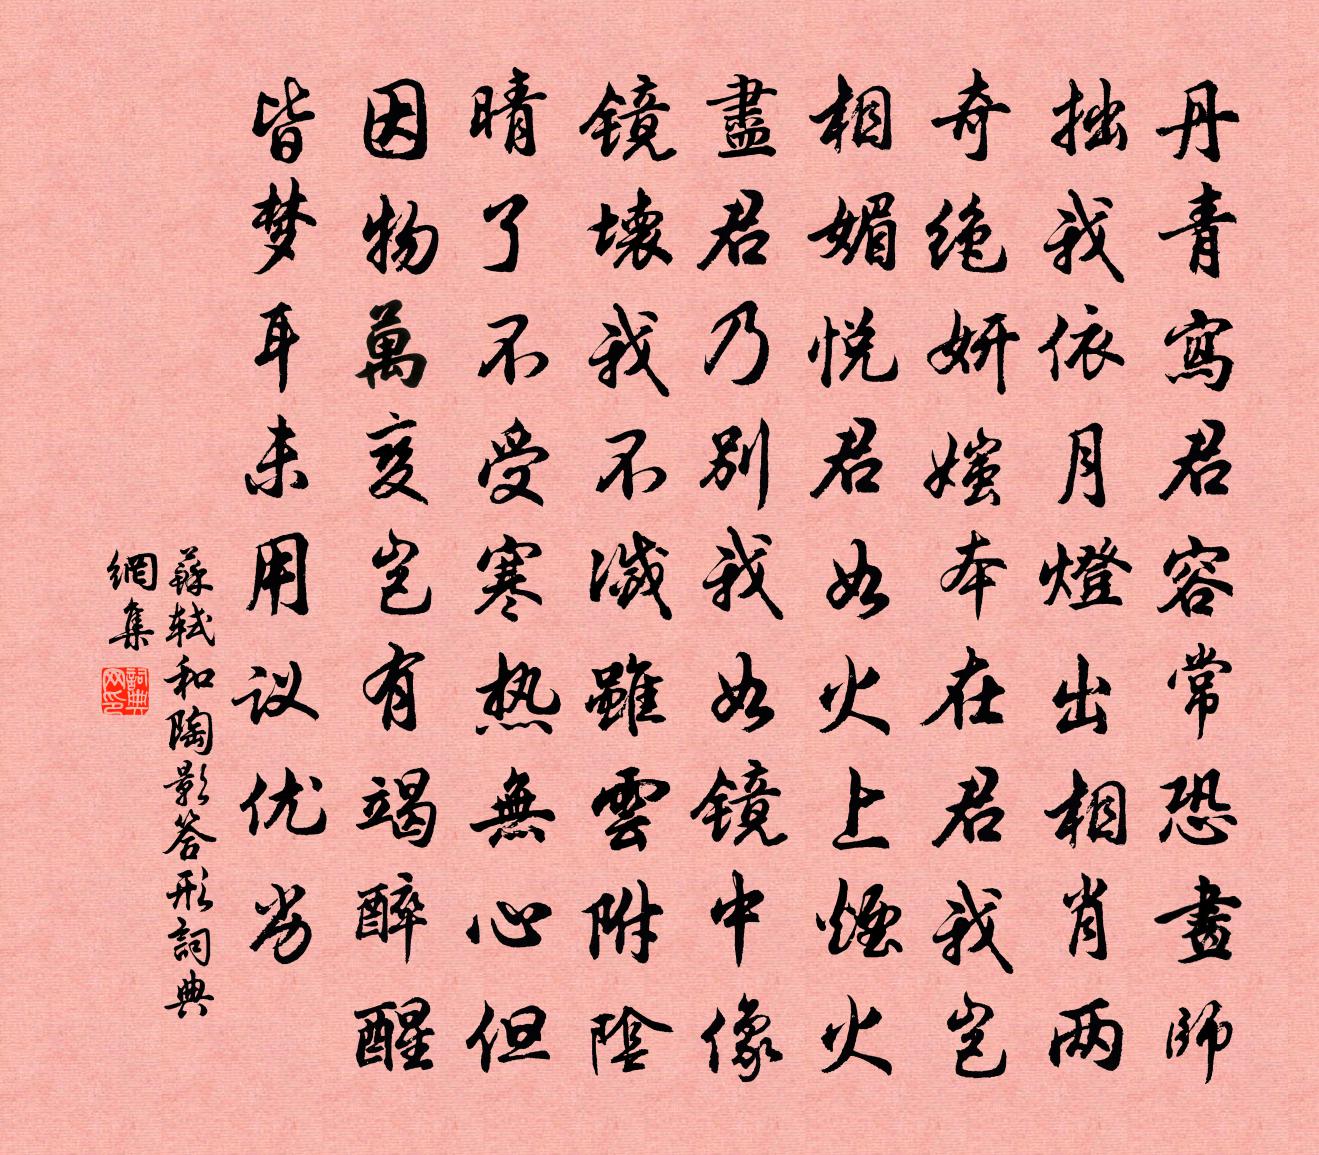 丹青寫君容常恐畫師
拙我依月燈出相肖两
奇绝妍媸本在君我岂
相媚悦君如火上煙火
盡君乃别我如镜中像
镜壊我不滅雖雲附陰
晴了不受寒热無心但
因物萬变岂有竭醉醒
皆梦耳未用议优劣
蘇轼和陶影答形詞典
網集
詞典网印